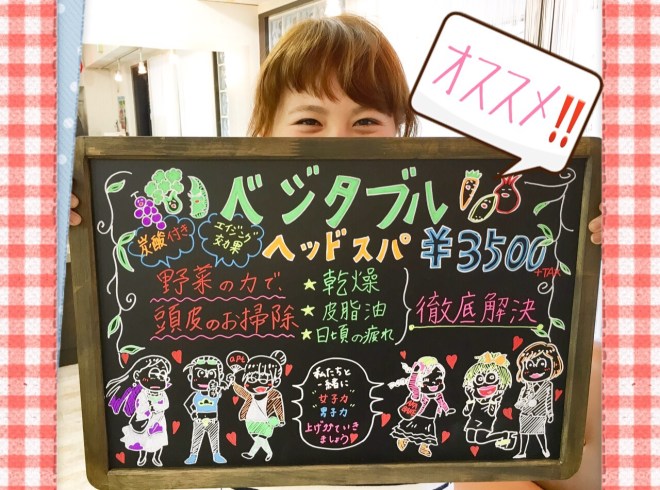 オススメ!!
ベジタブル
炭酸付き
エイジング
効果
ヘッドスパ ¥3500
+TAX
野菜の力で、
頭皮のお掃除
★乾燥
★皮脂油
★日頃の疲れ
徹底解決
私たちと
一緒に
"女子力"
"男子力"
上げがていき
ましょう